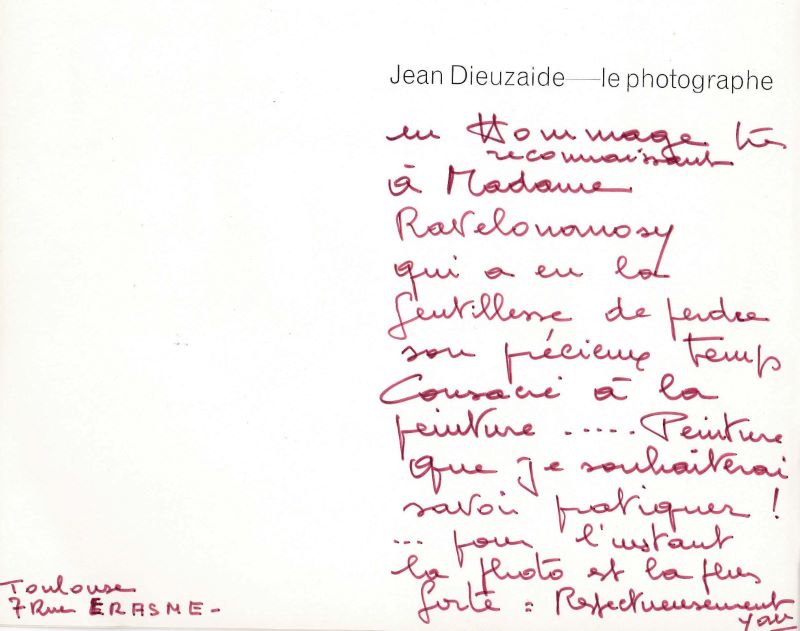 Jean Dieuzaide — le photographe
en Hommage très
reconnaissant
à Madame
Ravelonanosy
qui a eu la
gentillesse de perdre
son précieux temps
Consacré à la
peinture ..... Peinture
que je souhaiterai
savoir pratiquer !
... pour l'instant
la photo est la plus
forte = Respectueusement
Toulouse
7 Rue ERASME -
yan